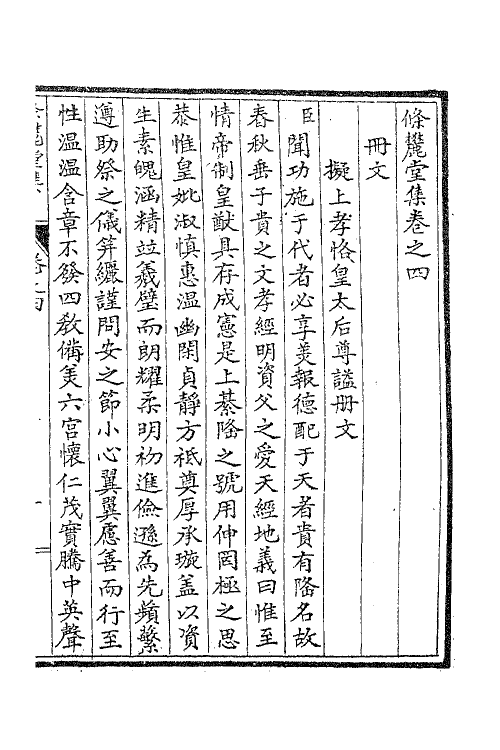 條麓堂集卷之四
冊文
擬上孝恪皇太后尊謚册文
臣聞功施于代者必享羙報德配于天者貴有隆名故
春秋垂子貴之文孝經明資父之愛天經地義曰惟至
情帝制皇猷具存成憲是上綦隆之號用伸罔極之思
恭惟皇妣淑慎惠温幽閑貞靜方祇奠厚承璇葢以資
生素魄涵精竝羲璧而朗耀柔明初進儉遜為先蘋蘩
遵助祭之儀笄纚謹問安之節小心翼翼慮善而行至
性温温含章不發四教備羙六宮懷仁茂實騰中英聲